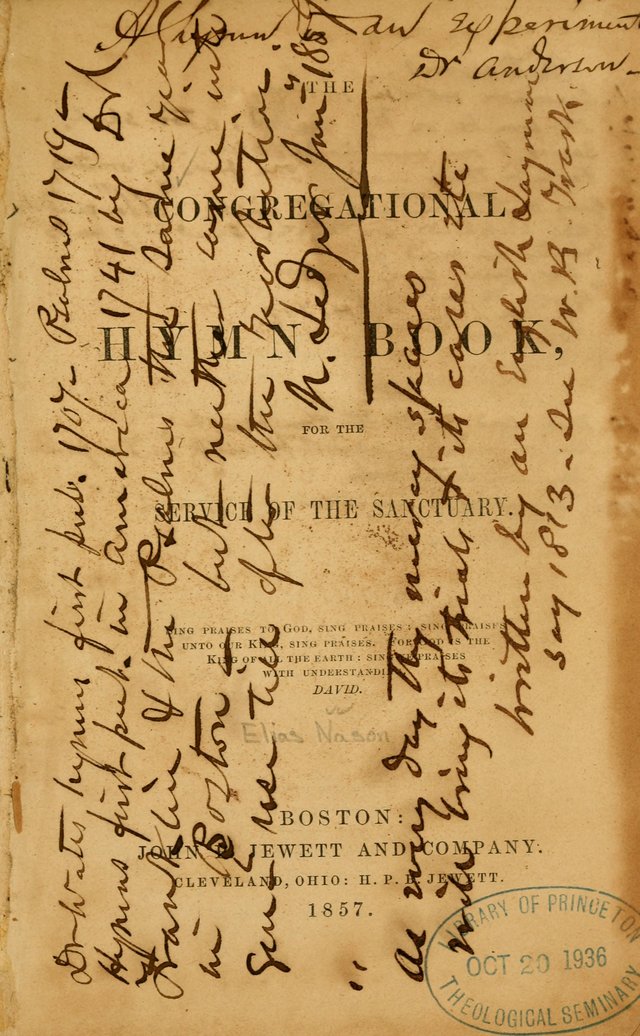 A hymn is an experiment
Dr Anderson -
THE
CONGREGATIONAL
HYMN BOOK,
FOR THE
SERVICE OF THE SANCTUARY.
SING PRAISES TO GOD, SING PRAISES: SING PRAISES
UNTO OUR KING, SING PRAISES. FOR GOD IS THE
KING OF ALL THE EARTH: SING YE PRAISES
WITH UNDERSTANDING.
DAVID.
Elias Nason
BOSTON:
JOHN P. JEWETT AND COMPANY.
CLEVELAND, OHIO: H. P. B. JEWETT.
1857.
LIBRARY OF PRINCETON
OCT 20 1936
THEOLOGICAL SEMINARY
Dr Watts hymns first pub. 1707 - Psalms 1719 -
Hymns first pub. in America 1741 by Dr
Franklin & the Psalms the same year
in Boston but neither came into
general use til after the revolution.
N. Jan 185
"As every day thy mercy spares
Will bring its trials & its cares etc
written by an English layman
say 1813 - See W. B.